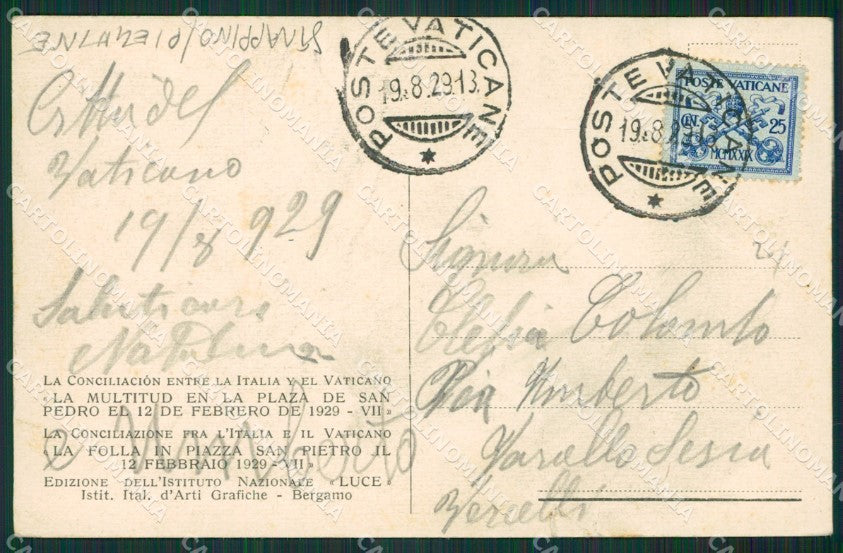 SINAPPINO/PIEMONTE
Citta del
Vaticano
19/8 929
Saluti cari
Natalina
e Umberto
LA CONCILIACIÓN ENTRE LA ITALIA Y EL VATICANO
«LA MULTITUD EN LA PLAZA DE SAN
PEDRO EL 12 DE FEBRERO DE 1929 - VII»
LA CONCILIAZIONE FRA L'ITALIA E IL VATICANO
«LA FOLLA IN PIAZZA SAN PIETRO IL
12 FEBBRAIO 1929 - VII»
EDIZIONE DELL'ISTITUTO NAZIONALE "LUCE"
Istit. Ital. d'Arti Grafiche - Bergamo
POSTE VATICANE
19.8.29.13
POSTE VATICANE
19.8.29.13
POSTE VATICANE
CNT. 25
MCMXXIX
Signora
Clefia Colombo
Via Umberto
Varallo Sesia
Vercelli
CARTOLINOMANIA